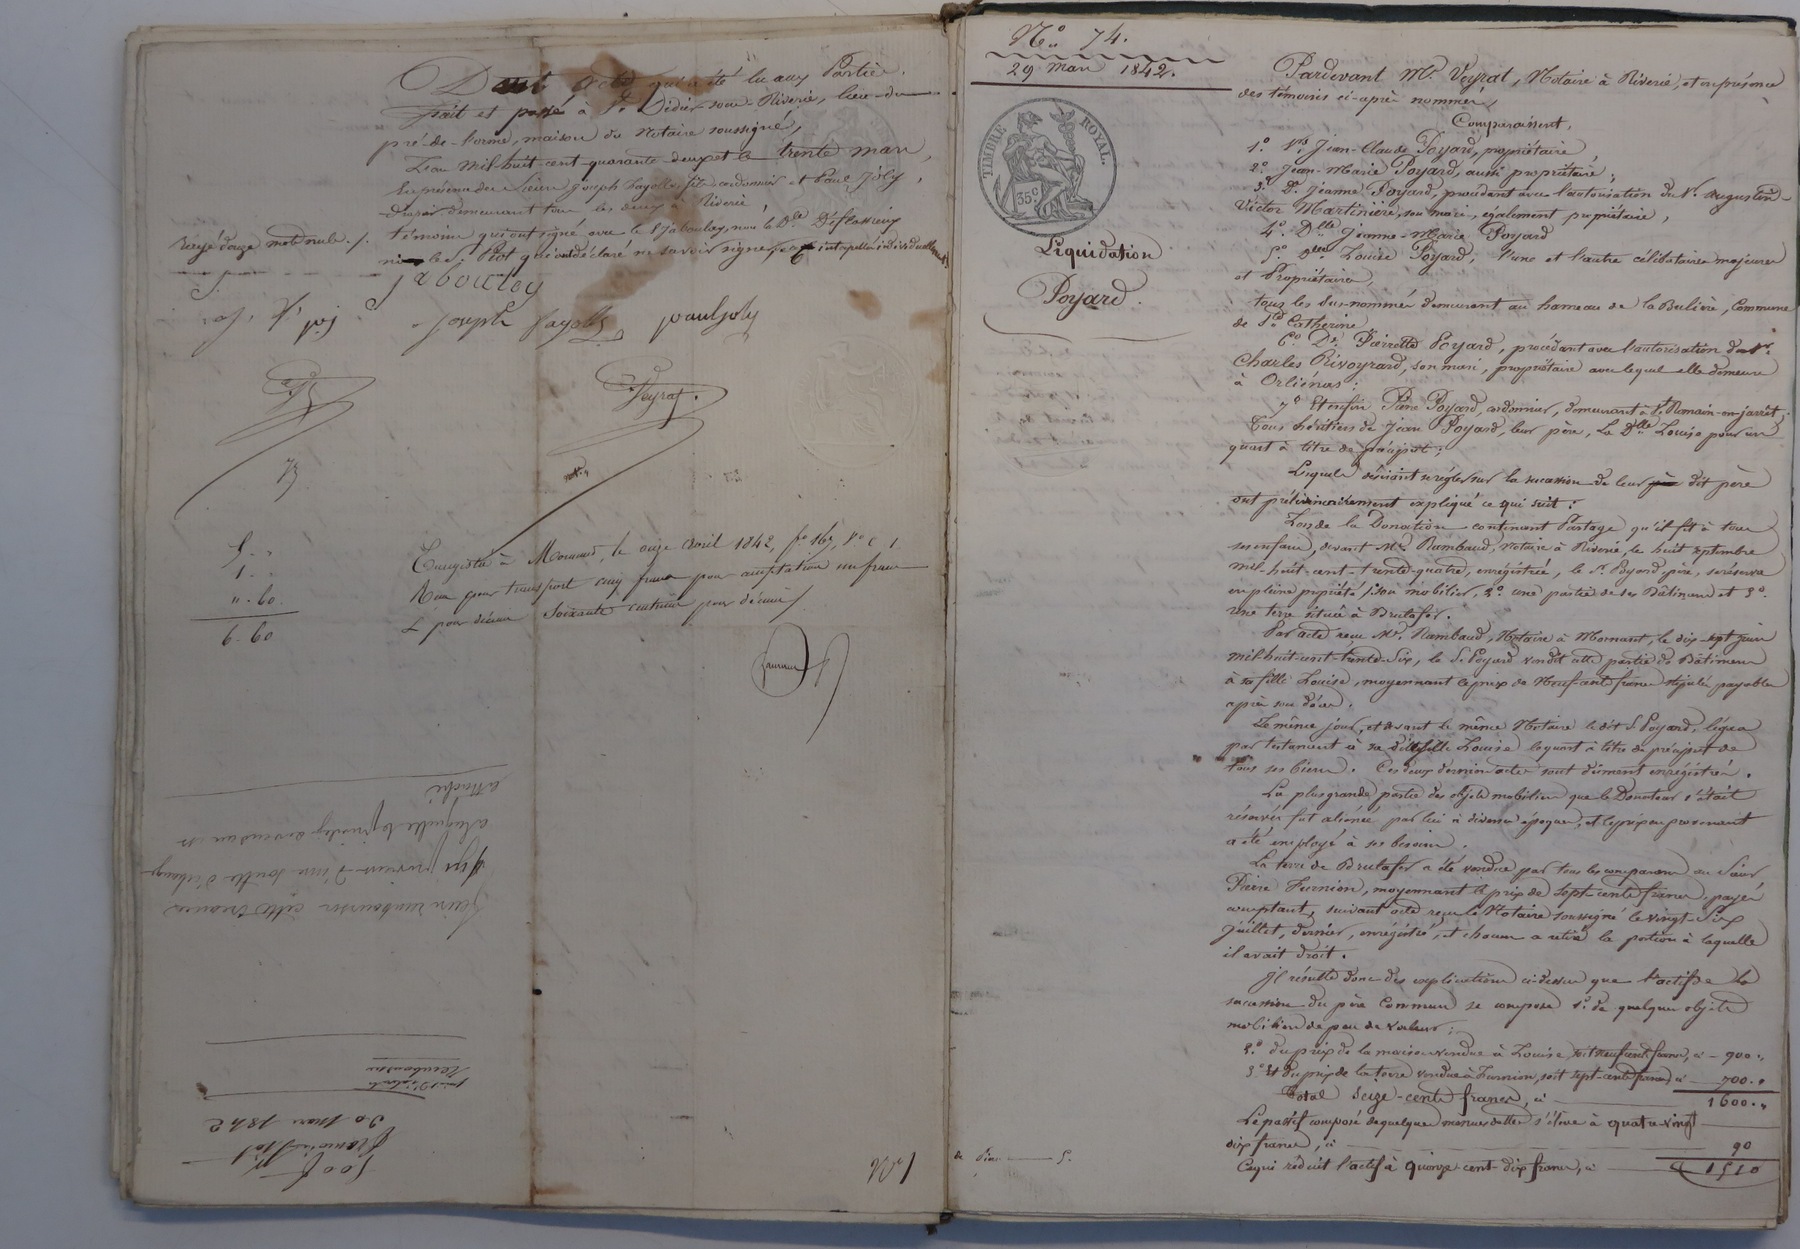 Dont acte qui a été lu aux Parties.
Fait et passé à St. Didier-sous-Riverie, lieu-du
pré-de-l'orme, maison du Notaire soussigné,
L'an mil-huit-cent-quarante-deux et le trente mars,
En présence des sieurs Joseph Fayolle, fils cordonnier et Paul Joly,
demeurant tous les deux à Riverie,
témoins qui ont signé avec le S. Jaboulay, non la De.
ni le S. Piot qui ont déclaré ne savoir signer, de ce interpellés individuellement.
Rayé douze mots nuls ./.
jaboulay
J. f. p.j
Joseph fayolle paul joly
Veyrat.
not.re
5. "
1. "
". 60.
6. 60
Enregistré à Mornant, le onze avril 1842, fo. 167, Vo. c. 1.
Reçu pour transport cinq francs pour acceptation un franc
& pour décime soixante centimes pour décime
attaché
à laquelle le privilège de vendeur est
qui provient d'une soulte d'échange
faire rembourser cette créance
30 mars 1842
500 f
No. 74.
29 Mars 1842.
TIMBRE ROYAL.
35 c
Liquidation
Poyard.
Pardevant Me. Veyrat, Notaire à Riverie, et en présence
des témoins ci-après nommés,
Comparaissent,
1o. Srs. Jean-Claude Poyard, propriétaire,
2o. Jean-Marie Poyard, aussi propriétaire,
3o. De. Jeanne Poyard, procédant avec l'autorisation du Sr. Augustin-
Victor Martinière, son mari, également propriétaire,
4o. Dlle. Jeanne-Marie Poyard
5o. Dlle. Louise Poyard, l'une et l'autre célibataires majeures
et Propriétaires,
tous les sus-nommés demeurant au hameau de la Bulière, Commune
de Ste. Catherine
6o. De. Pierrette Poyard, procédant avec l'autorisation du Sr.
Charles Rivoyrard, son mari, propriétaire avec lequel elle demeure
à Orliénas;
7o. Et enfin Pierre Poyard, cordonnier, demeurant à St. Romain-en-jarrêt;
Tous héritiers de Jean Poyard, leur père, la Dlle. Louise pour un
quart à titre de préciput;
Lesquels désirant se régler sur la succession de leur dit père
ont préliminairement expliqué ce qui suit:
Lors de la Donation contenant Partage qu'il fit à tous
ses enfans, devant Me. Rambaud, Notaire à Riverie, le huit septembre
mil-huit-cent-trente-quatre, enregistrée, le Sr. Poyard, père, se réserva
en pleine propriété 1o. son mobilier, 2o. une partie de ses Bâtimens et 3o.
une terre située à Brutafer.
Par acte reçu Me. Rambaud, Notaire à Mornant, le dix-sept juin
mil-huit-cent-trente-Six, le S. Poyard vendit cette partie de Bâtimens
à sa fille Louise, moyennant le prix de Neuf-cents francs stipulés payables
après son décès.
Le même jour, et devant le même Notaire le dit S. Poyard, légua
par testament à sa dite fille Louise le quart à titre de préciput de
tous ses biens. Ces deux derniers actes sont dûment enregistrés.
La plus grande partie des objets mobiliers que le Donateur s'était
réservés fut aliénée par lui à diverses époques, et le prix en provenant
a été employé à ses besoins.
La terre de Brutafer a été vendue par tous les comparans au Sieur
Pierre Furnion, moyennant le prix de Sept-cents francs payés
comptant, suivant acte reçu le Notaire soussigné le vingt-Six
juillet, dernier, enregistré, et chacun a retiré la portion à laquelle
il avait droit.
Il résulte donc des explications ci-dessus que l'actif de la
succession du père Commun se compose 1o. de quelques objets
mobiliers de peu de valeur;
2o. du prix de la maison vendue à Louise, soit neuf cents francs, ci — 900. "
3o. Et du prix de la terre vendue à Furnion, soit sept-cents francs, ci — 700. "
Total Seize-cents francs, ci — 1600. "
Le passif composé de quelques menues dettes s'élève à quatre vingt
dix francs, ci — 90
Ce qui réduit l'actif à quinze-cent-dix francs, ci — 1510